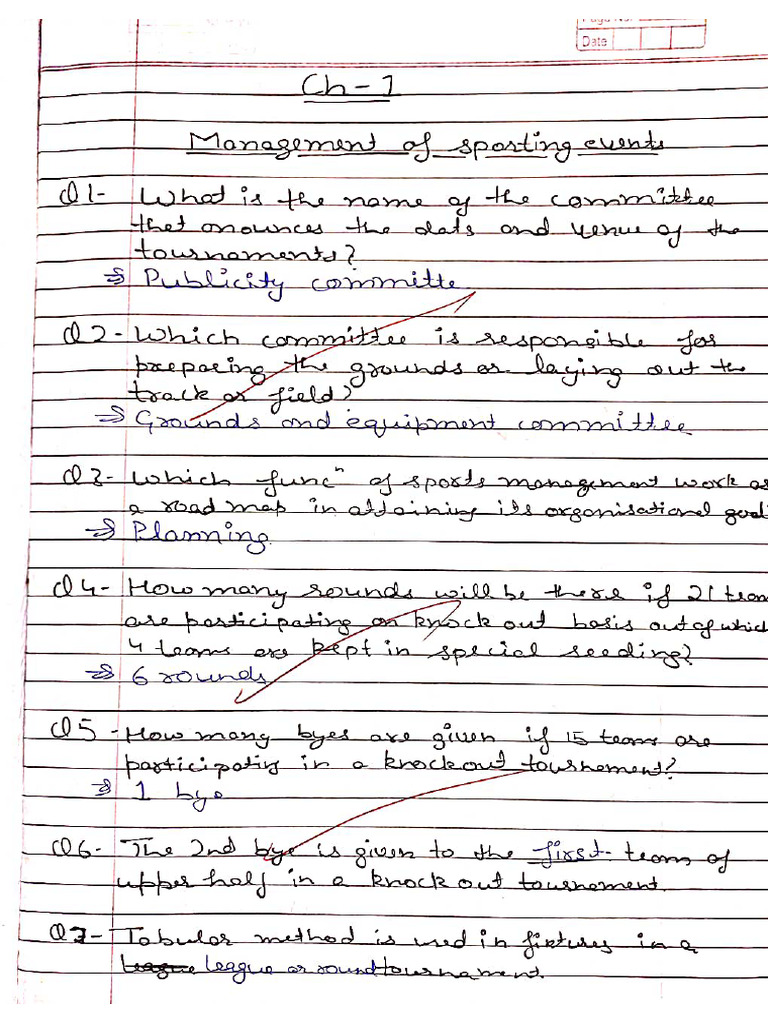 Page No.
Date
Ch-1
Management of sporting events
Q1- What is the name of the committee
that onounces the date and venue of the
tournaments?
⇒ Publicity committe
Q2- Which committee is responsible for
preparing the grounds or laying out the
track or field?
⇒ Grounds and equipment committee
Q3- Which funcⁿ of sports management work as
a road map in attaining its organisational goal
⇒ Planning
Q4- How many rounds will be there if 21 team
are participating on knock out basis out of which
4 teams are kept in special seeding?
⇒ 6 rounds
Q5- How many byes are given if 15 team are
participating in a knockout tournement?
⇒ 1 bye
Q6- The 2nd bye is given to the first team of
upper half in a knock out tournement.
Q7- Tabular method is used in fixtures in a
league league or round tournament.